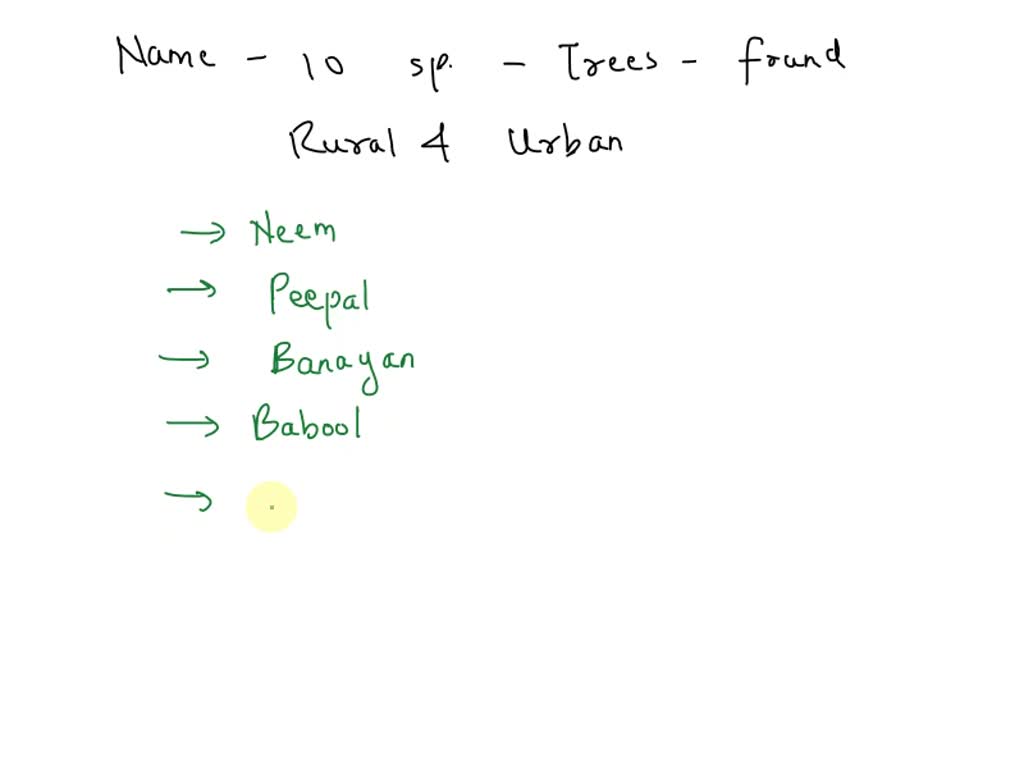 Name - 10 sp. - Trees - found
Rural & Urban
→ Neem
→ Peepal
→ Banayan
→ Babool
→